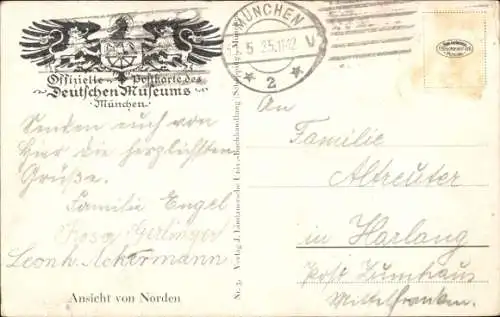 Offizielle Postkarte des
Deutschen Museums
München
Senden euch von
hier die herzlichsten
Grüße.
Familie Engel
Rosa Gerlinger
Leonh. Ackermann
Ansicht von Norden
Nr. 3. Verlag J. Lindauersche Univ.-Buchhandlung (Schöpping), München
MÜNCHEN
5 5.25.11-12 V
* 2 *
An
Familie
Altreuter
in Harlang
Post Dumhaus
Mittelfranken.